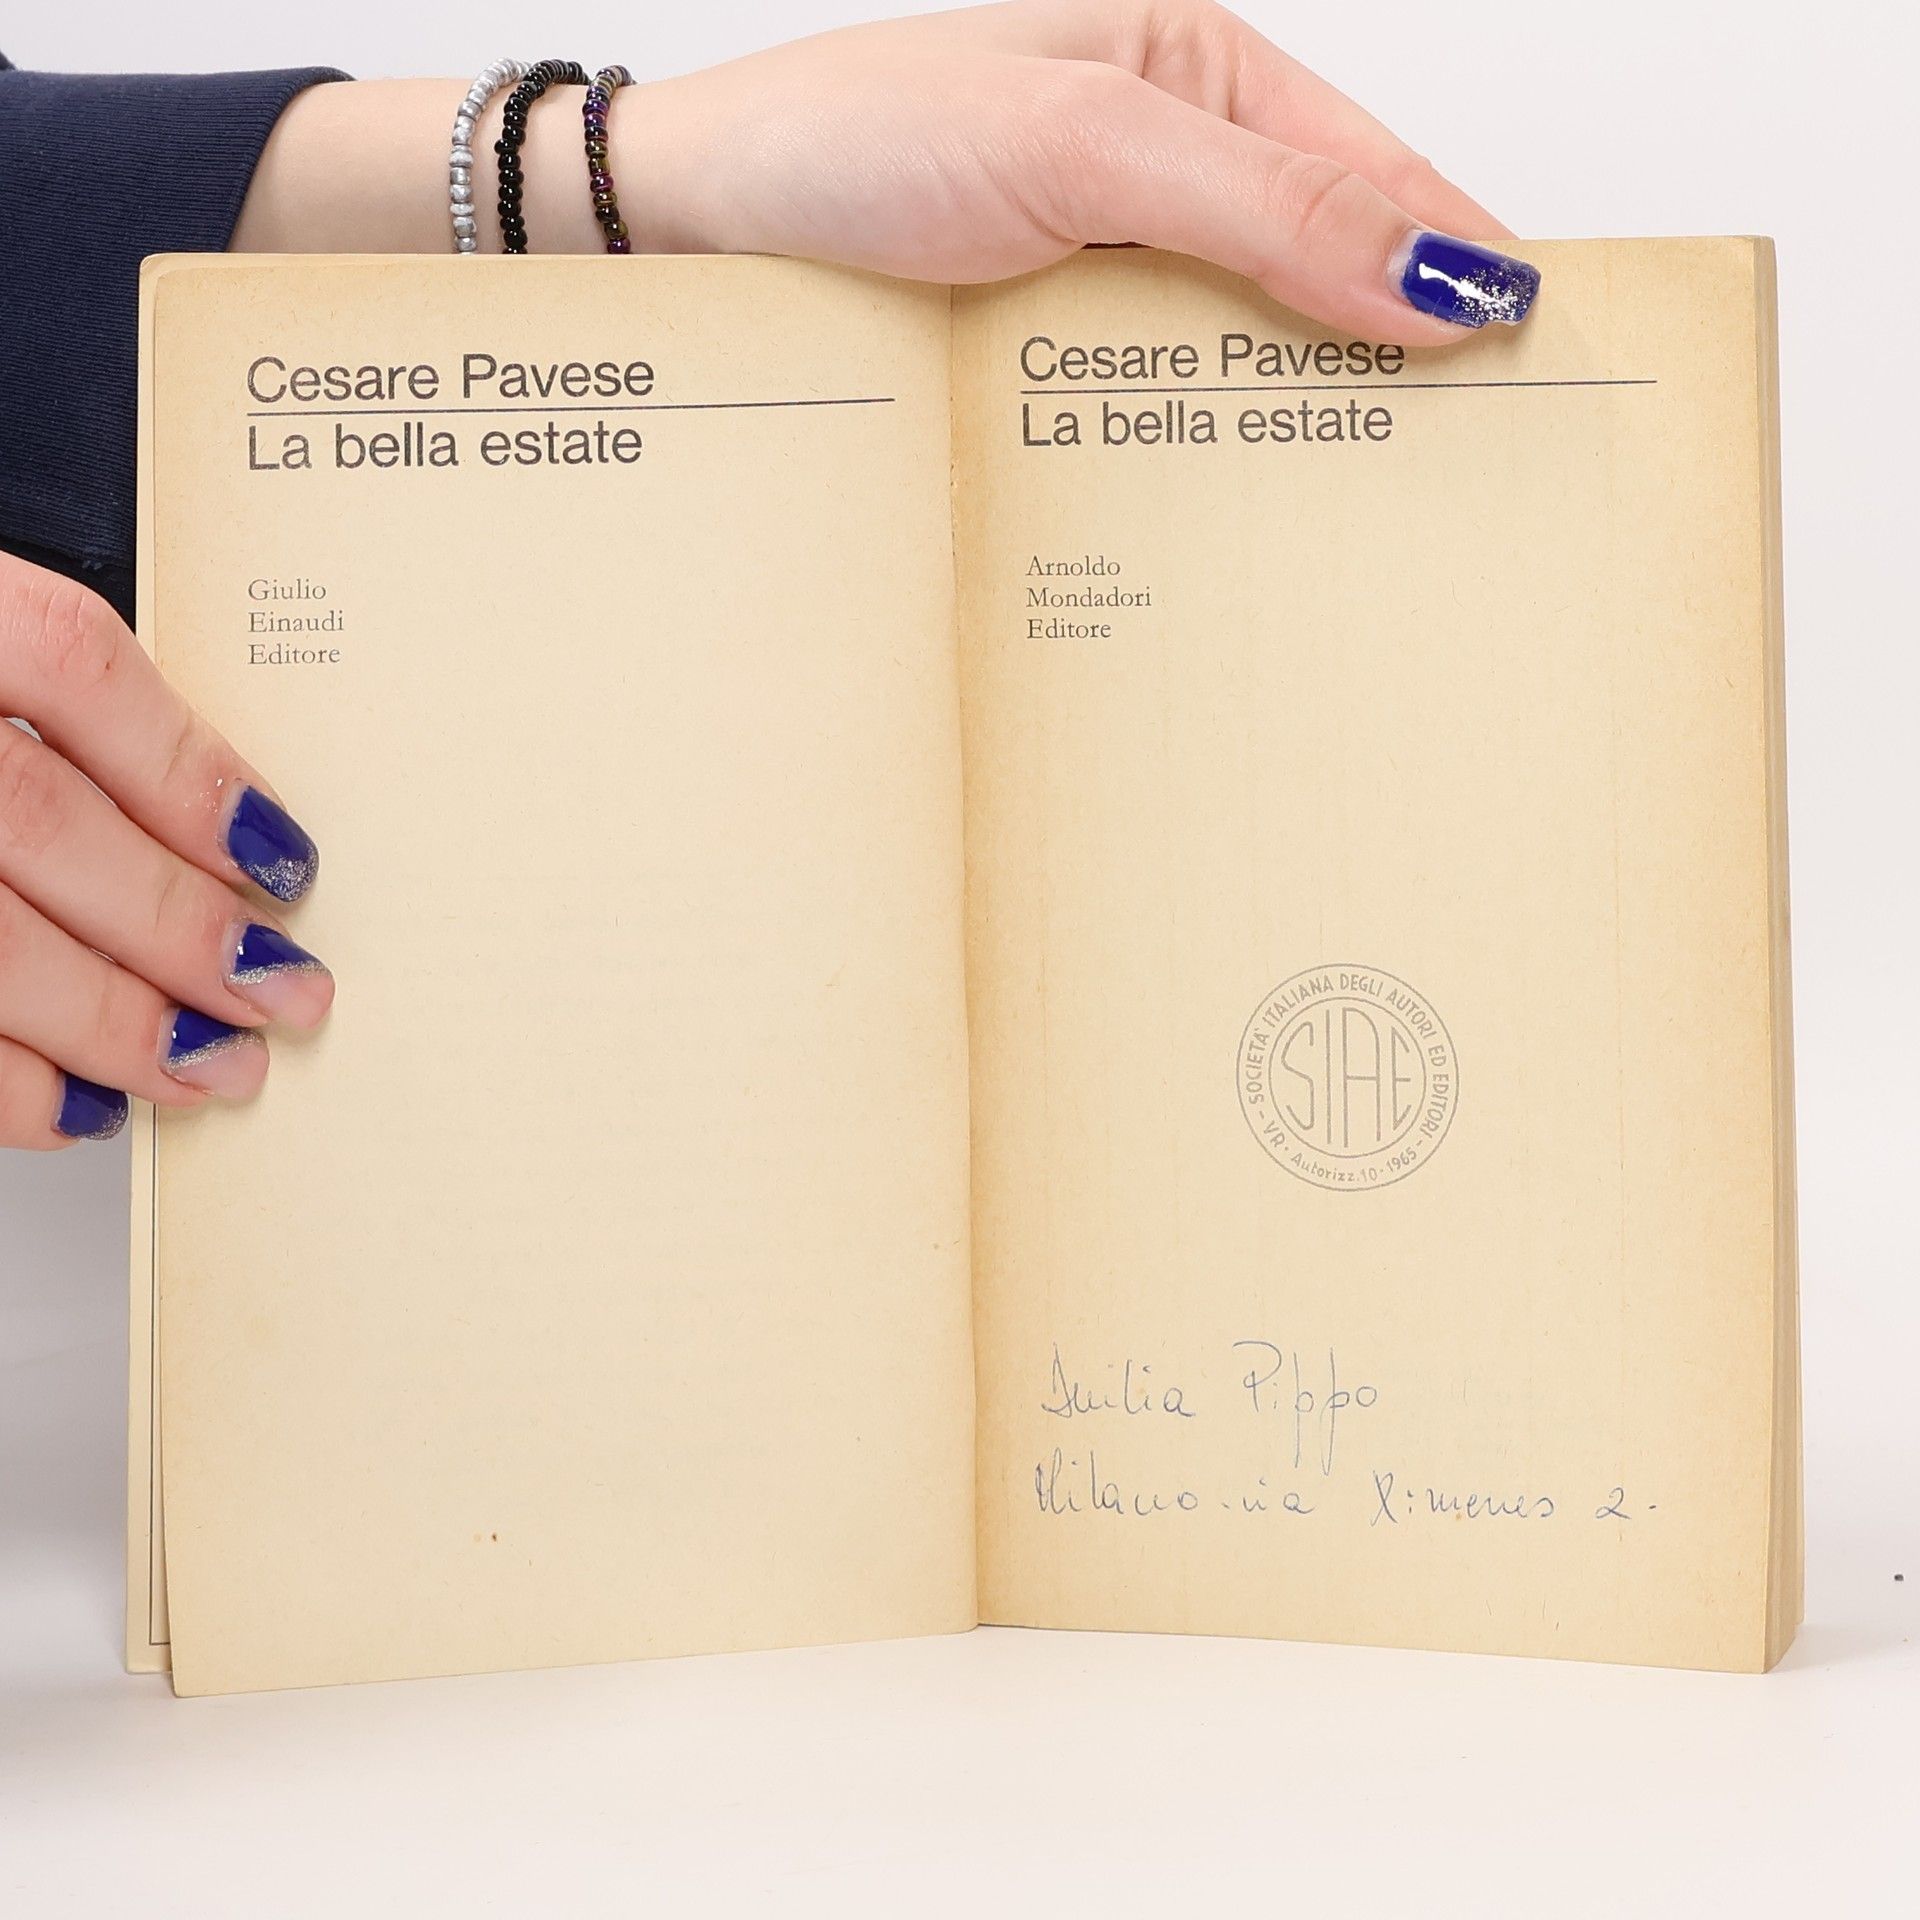 Cesare Pavese
La bella estate
Giulio
Einaudi
Editore
Cesare Pavese
La bella estate
Arnoldo
Mondadori
Editore
SOCIETA' ITALIANA DEGLI AUTORI ED EDITORI
SIAE
- VR · Autorizz. 10 - 1965 -
Pippo
Milano - via Ximenes 2 -